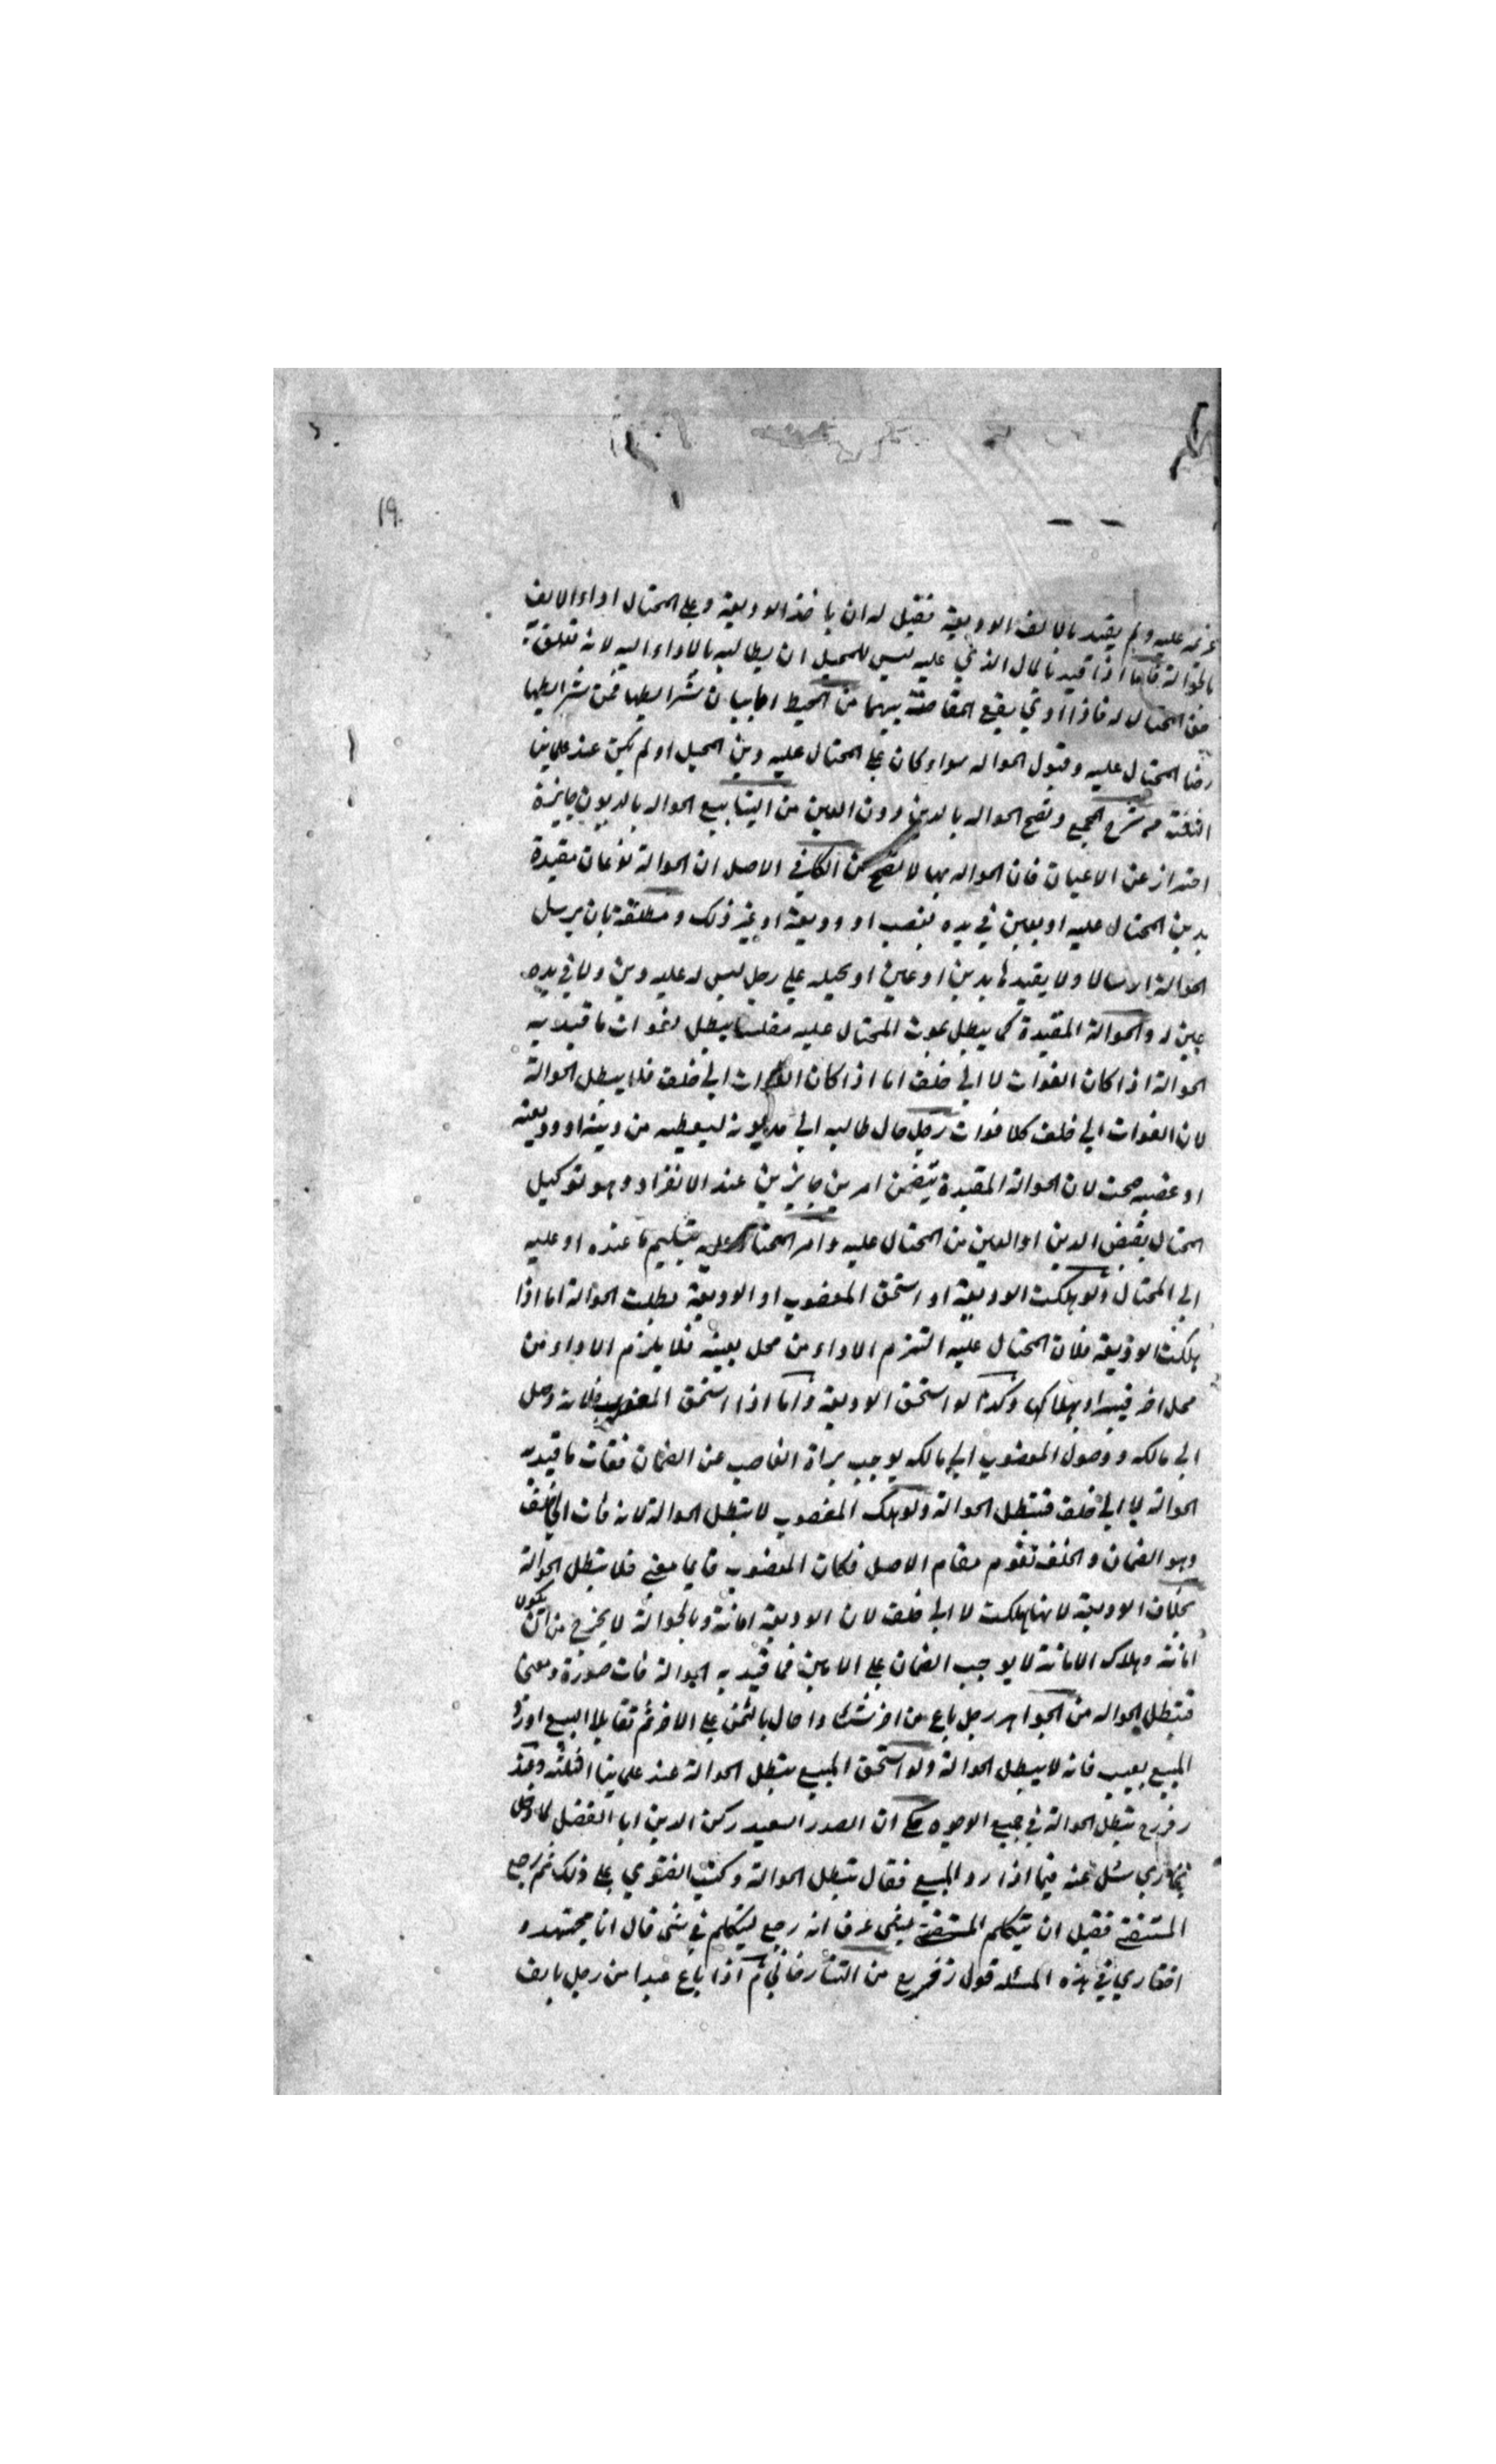 ١٩
غريمه عليه ولم يقيد بالالف الوديعة فقيل له ان ياخذ الوديعة وعلى المحتال اداء الالف
بالحوالة فاما اذا قيد بالمال الذي عليه ليس للمحيل ان يطالبه بالاداء اليه لانه تعلق به
حق المحتال له فاذا ادى يقع المقاصة بينهما من المحيط اما بيان شرايطها فمن شرايطها
رضا المحتال عليه وقبول الحواله سواء كان على المحتال عليه دين المحيل او لم يكن عند علمائنا
الثلثة من شرح المجمع وتصح الحواله بالدين دون العين من الينابيع الحواله بالديون جايزة
احتراز عن الاعيان فان الحواله بها لا تصح من الكافي الاصل ان الحوالة نوعان مقيدة
بدين المحتال عليه او بعين في يده بغصب او وديعة او غير ذلك ومطلقة بان يرسل
الحوالة ارسالا ولا يقيدها بدين او عين او يحيله على رجل ليس له عليه دين ولا في يده
عين له والحوالة المقيدة كما يبطل بموت المحتال عليه مفلسا يبطل لفوات ما قيد به
الحوالة اذا كان الفوات لا الى خلف اما اذا كان الفوات الى خلف فلا يبطل الحوالة
لان الفوات الى خلف كلا فوات رجل حال طالبه الى مديونه ليعطيه من دينه او وديعته
او غصبه صحت لان الحوالة المقيدة يتضمن امرين جايزين عند الانفراد وهو توكيل
المحتال بقبض الدين او العين من المحتال عليه وامر المحتال عليه بتسليم ما عنده او عليه
الى المحتال ولو هلكت الوديعة او استحق المغصوب او الوديعة بطلت الحوالة اما اذا
هلكت الوديعة فلان المحتال عليه التزم الاداء من محل بعينه فلا يلزم الاداء من
محل اخر فيبرا وبهلاكها وكذا لو استحق الوديعة واما اذا استحق المغصوب فلانه وصل
الى مالكه ووصول المغصوب الى مالكه يوجب براة الغاصب عن الضمان ففات ما قيد به
الحوالة لا الى خلف فتبطل الحوالة ولو هلك المغصوب لا تبطل الحوالة لانه فات الى خلف
وهو الضمان والخلف تقوم مقام الاصل فكان المغصوب قايما معنى فلا تبطل الحوالة
بخلاف الوديعة لانها هلكت لا الى خلف لان الوديعة امانة وبالحوالة لا يخرج من ان يكون
امانة وهلاك الامانة لا يوجب الضمان على الامين فما قيد به الحوالة فات صورة ومعنى
فتبطل الحواله من الجواهر رجل باع من اخر شيئا واحال بالثمن على الاخر ثم تقايلا البيع او رد
المبيع بعيب فانه لا يبطل الحوالة ولو استحق المبيع تبطل الحوالة عند علمائنا الثلثة وعند
زفر رح تبطل الحوالة في جميع الوجوه حكي ان الصدر السعيد ركن الدين ابا الفضل لما دخل
بخارى سئل عنه فيما اذا رد المبيع فقال تبطل الحوالة وكتب الفتوى على ذلك ثم رجع
المستفتى فقيل ان يتكلم المستفتى بشى عرف انه رجع ليتكلم في شى قال انا مجتهد و
اختياري في هذه المسئله قول زفر رح من التتارخاني ثم اذا باع عبدا من رجل بالف